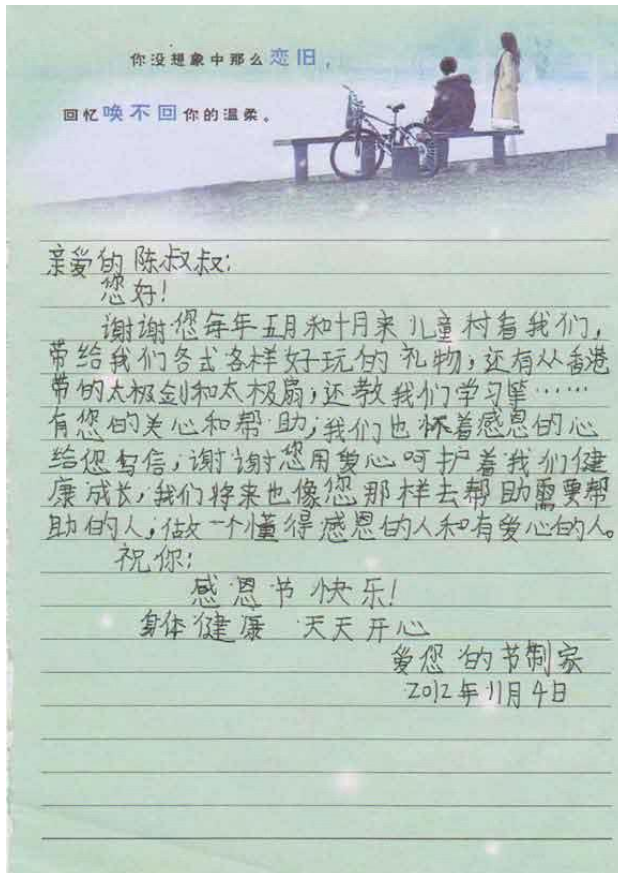 你没想象中那么恋旧，
回忆唤不回你的温柔。
亲爱的陈叔叔：
您好！
谢谢您每年五月和十月来儿童村看我们，
带给我们各式各样好玩的礼物，还有从香港
带的太极剑和太极扇，还教我们学习笔……
有您的关心和帮助，我们也怀着感恩的心
给您写信，谢谢您用爱心呵护着我们健
康成长，我们将来也像您那样去帮助需要帮
助的人，做一个懂得感恩的人和有爱心的人。
祝你：
感恩节快乐！
身体健康 天天开心
爱您的节制家
2012年11月4日